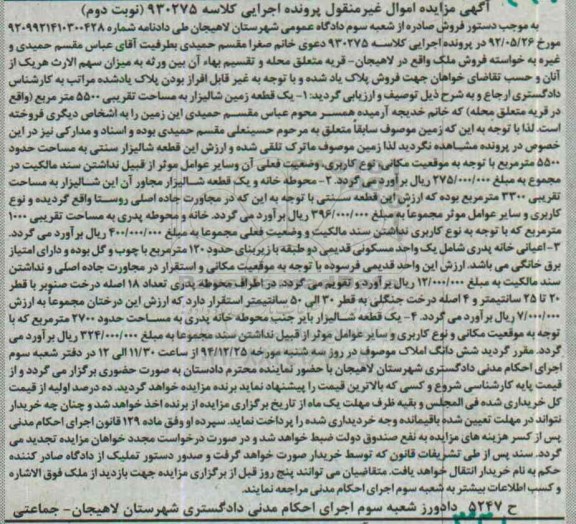 آگهی مزایده اموال غیرمنقول پرونده اجرایی کلاسه ۹۳۰۲۷۵ (نوبت دوم)
به موجب دستور فروش صادره از شعبه سوم دادگاه عمومی شهرستان لاهیجان طی دادنامه شماره ۹۲۰۹۹۲۱۴۱۰۳۰۰۴۲۸
مورخ ۹۲/۰۵/۲۶ در پرونده اجرایی کلاسه ۹۳۰۲۷۵ دعوی خانم صغرا مقسم حمیدی بطرفیت آقای عباس مقسم حمیدی و
غیره به خواسته فروش ملک واقع در لاهیجان- قریه متعلق محله و تقسیم بهاء آن بین ورثه به میزان سهم الارث هریک از
آنان و حسب تقاضای خواهان جهت فروش پلاک یاد شده و با توجه به غیر قابل افراز بودن پلاک یادشده مراتب به کارشناس
دادگستری ارجاع و به شرح ذیل توصیف و ارزیابی گردید: ۱- یک قطعه زمین شالیزار به مساحت تقریبی ۵۵۰۰ متر مربع (واقع
در قریه متعلق محله) که خانم خدیجه آرمیده همسر محوم عباس مقسم حمیدی این زمین را به اشخاص دیگری فروخته
است. لذا با توجه به این که زمین موصوف سابقا متعلق به مرحوم حسینعلی مقسم حمیدی بوده و اسناد و مدارکی نیز در این
خصوص در پرونده مشاهده نگردید لذا زمین موصوف ماترک تلقی شده و ارزش این قطعه شالیزار سنتی به مساحت حدود
۵۵۰۰ مترمربع با توجه به موقعیت مکانی، نوع کاربری، وضعیت فعلی آن وسایر عوامل موثر از قبیل نداشتن سند مالکیت در
مجموع به مبلغ ۲۷۵/۰۰۰/۰۰۰ ریال برآورد می گردد. ۲- محوطه خانه و یک قطعه شالیزار مجاور آن این شالیزار به مساحت
تقریبی ۳۳۰۰ مترمربع بوده که ارزش این قطعه سنتی با توجه به این که در مجاورت جاده اصلی روستا واقع گردیده و نوع
کاربری و سایر عوامل موثر مجموعا به مبلغ ۳۹۶/۰۰۰/۰۰۰ ریال برآورد می گردد. خانه و محوطه پدری به مساحت تقریبی ۱۰۰۰
مترمربع که با توجه به نوع کاربری نداشتن سند مالکیت و وضعیت فعلی مجموعا به مبلغ ۴۰۰/۰۰۰/۰۰۰ ریال برآورد می گردد.
۳- اعیانی خانه پدری شامل یک واحد مسکونی قدیمی دو طبقه با زیربنای حدود ۱۲۰ مترمربع با چوب و گل بوده و دارای امتیاز
برق خانگی می باشد. ارزش این واحد قدیمی فرسوده با توجه به موقعیت مکانی و استقرار در مجاورت جاده اصلی و نداشتن
سند مالکیت به مبلغ ۱۲/۰۰۰/۰۰۰ ریال برآورد و تقویم می گردد. در اطراف محوطه پدری تعداد ۱۸ اصله درخت صنوبر با قطر
۲۰ تا ۲۵ سانتیمتر و ۴ اصله درخت جنگلی به قطر ۳۰ الی ۵۰ سانتیمتر استقرار دارد که ارزش این درختان مجموعا به ارزش
۷/۰۰۰/۰۰۰ ریال برآورد می گردد. ۴- یک قطعه شالیزار بایر جنب محوطه خانه پدری به مساحت حدود ۲۷۰۰ مترمربع که با
توجه به موقعیت مکانی و نوع کاربری و سایر عوامل موثر از قبیل نداشتن سند مجموعا به مبلغ ۳۲۴/۰۰۰/۰۰۰ ریال برآورد می
گردد. مقرر گردید شش دانگ املاک موصوف در روز سه شنبه مورخه ۹۴/۱۲/۲۵ از ساعت ۱۱/۳۰ الی ۱۲ در دفتر شعبه سوم
اجرای احکام مدنی دادگستری شهرستان لاهیجان با حضور نماینده محترم دادستان به صورت حضوری برگزار می گردد و از
قیمت پایه کارشناسی شروع و کسی که بالاترین قیمت را پیشنهاد نماید برنده مزایده خواهد گردید. ده درصد اولیه از قیمت
کل خریداری شده فی المجلس و بقیه ظرف مهلت یک ماه از تاریخ برگزاری مزایده از برنده اخذ خواهد شد و چنان چه خریدار
نتواند در مهلت تعیین شده باقیمانده وجه خریداری شده را پرداخت نماید. سپرده او وفق ماده ۱۲۹ قانون اجرای احکام مدنی
پس از کسر هزینه های مزایده به نفع صندوق دولت ضبط خواهد شد و در صورت درخواست مجدد خواهان مزایده تجدید می
گردد. سند پس از طی تشریفات قانون که توسط خریدار صورت خواهد گرفت و صدور دستور تملیک از دادگاه صادر کننده
حکم به نام خریدار انتقال خواهد یافت. متقاضیان می توانند پنج روز قبل از برگزاری مزایده جهت بازدید از ملک فوق الاشاره
و کسب اطلاعات بیشتر به شعبه سوم اجرای احکام مدنی مراجعه نمایند.
ح ۵۲۴۷ دادورز شعبه سوم اجرای احکام مدنی دادگستری شهرستان لاهیجان- جماعتی